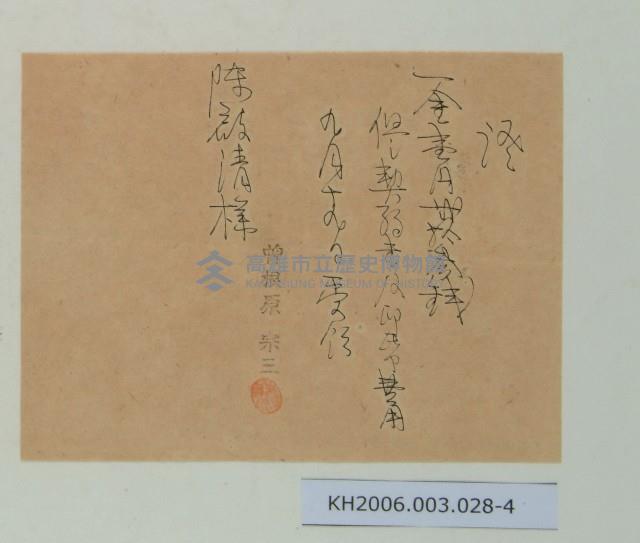 證
一金壹円
但し契約書及印 費用
九月十九日受領
曽根原 宗三
陳啟清様
高雄市立歷史博物館
KAOHSIUNG MUSEUM OF HISTORY
KH2006.003.028-4